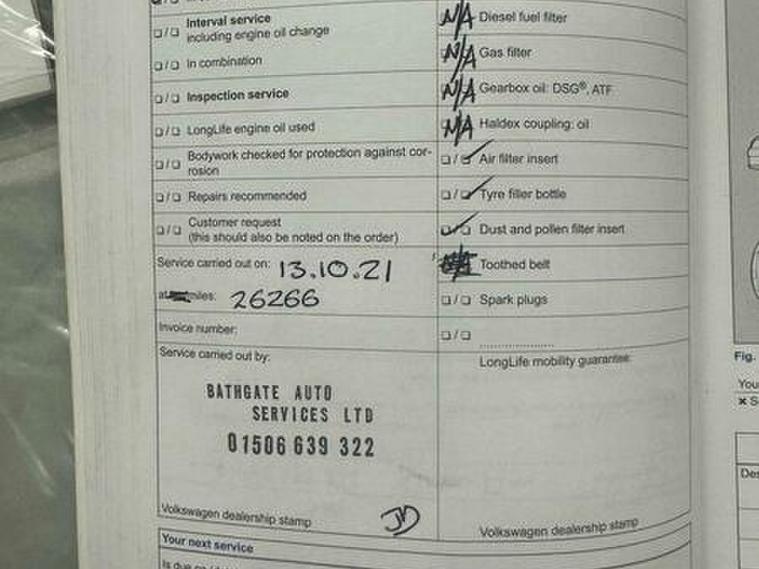 Interval service
including engine oil change
In combination
Inspection service
LongLife engine oil used
Bodywork checked for protection against cor-
rosion
Repairs recommended
Customer request
(this should also be noted on the order)
Service carried out on: 13.10.21
at miles: 26266
Invoice number:
Service carried out by:
BATHGATE AUTO
SERVICES LTD
01506 639 322
Volkswagen dealership stamp JD
Your next service
N/A Diesel fuel filter
N/A Gas filter
N/A Gearbox oil: DSG®, ATF
N/A Haldex coupling: oil
Air filter insert
Tyre filler bottle
Dust and pollen filter insert
Toothed belt
Spark plugs
LongLife mobility guarantee:
Volkswagen dealership stamp
Fig.
You